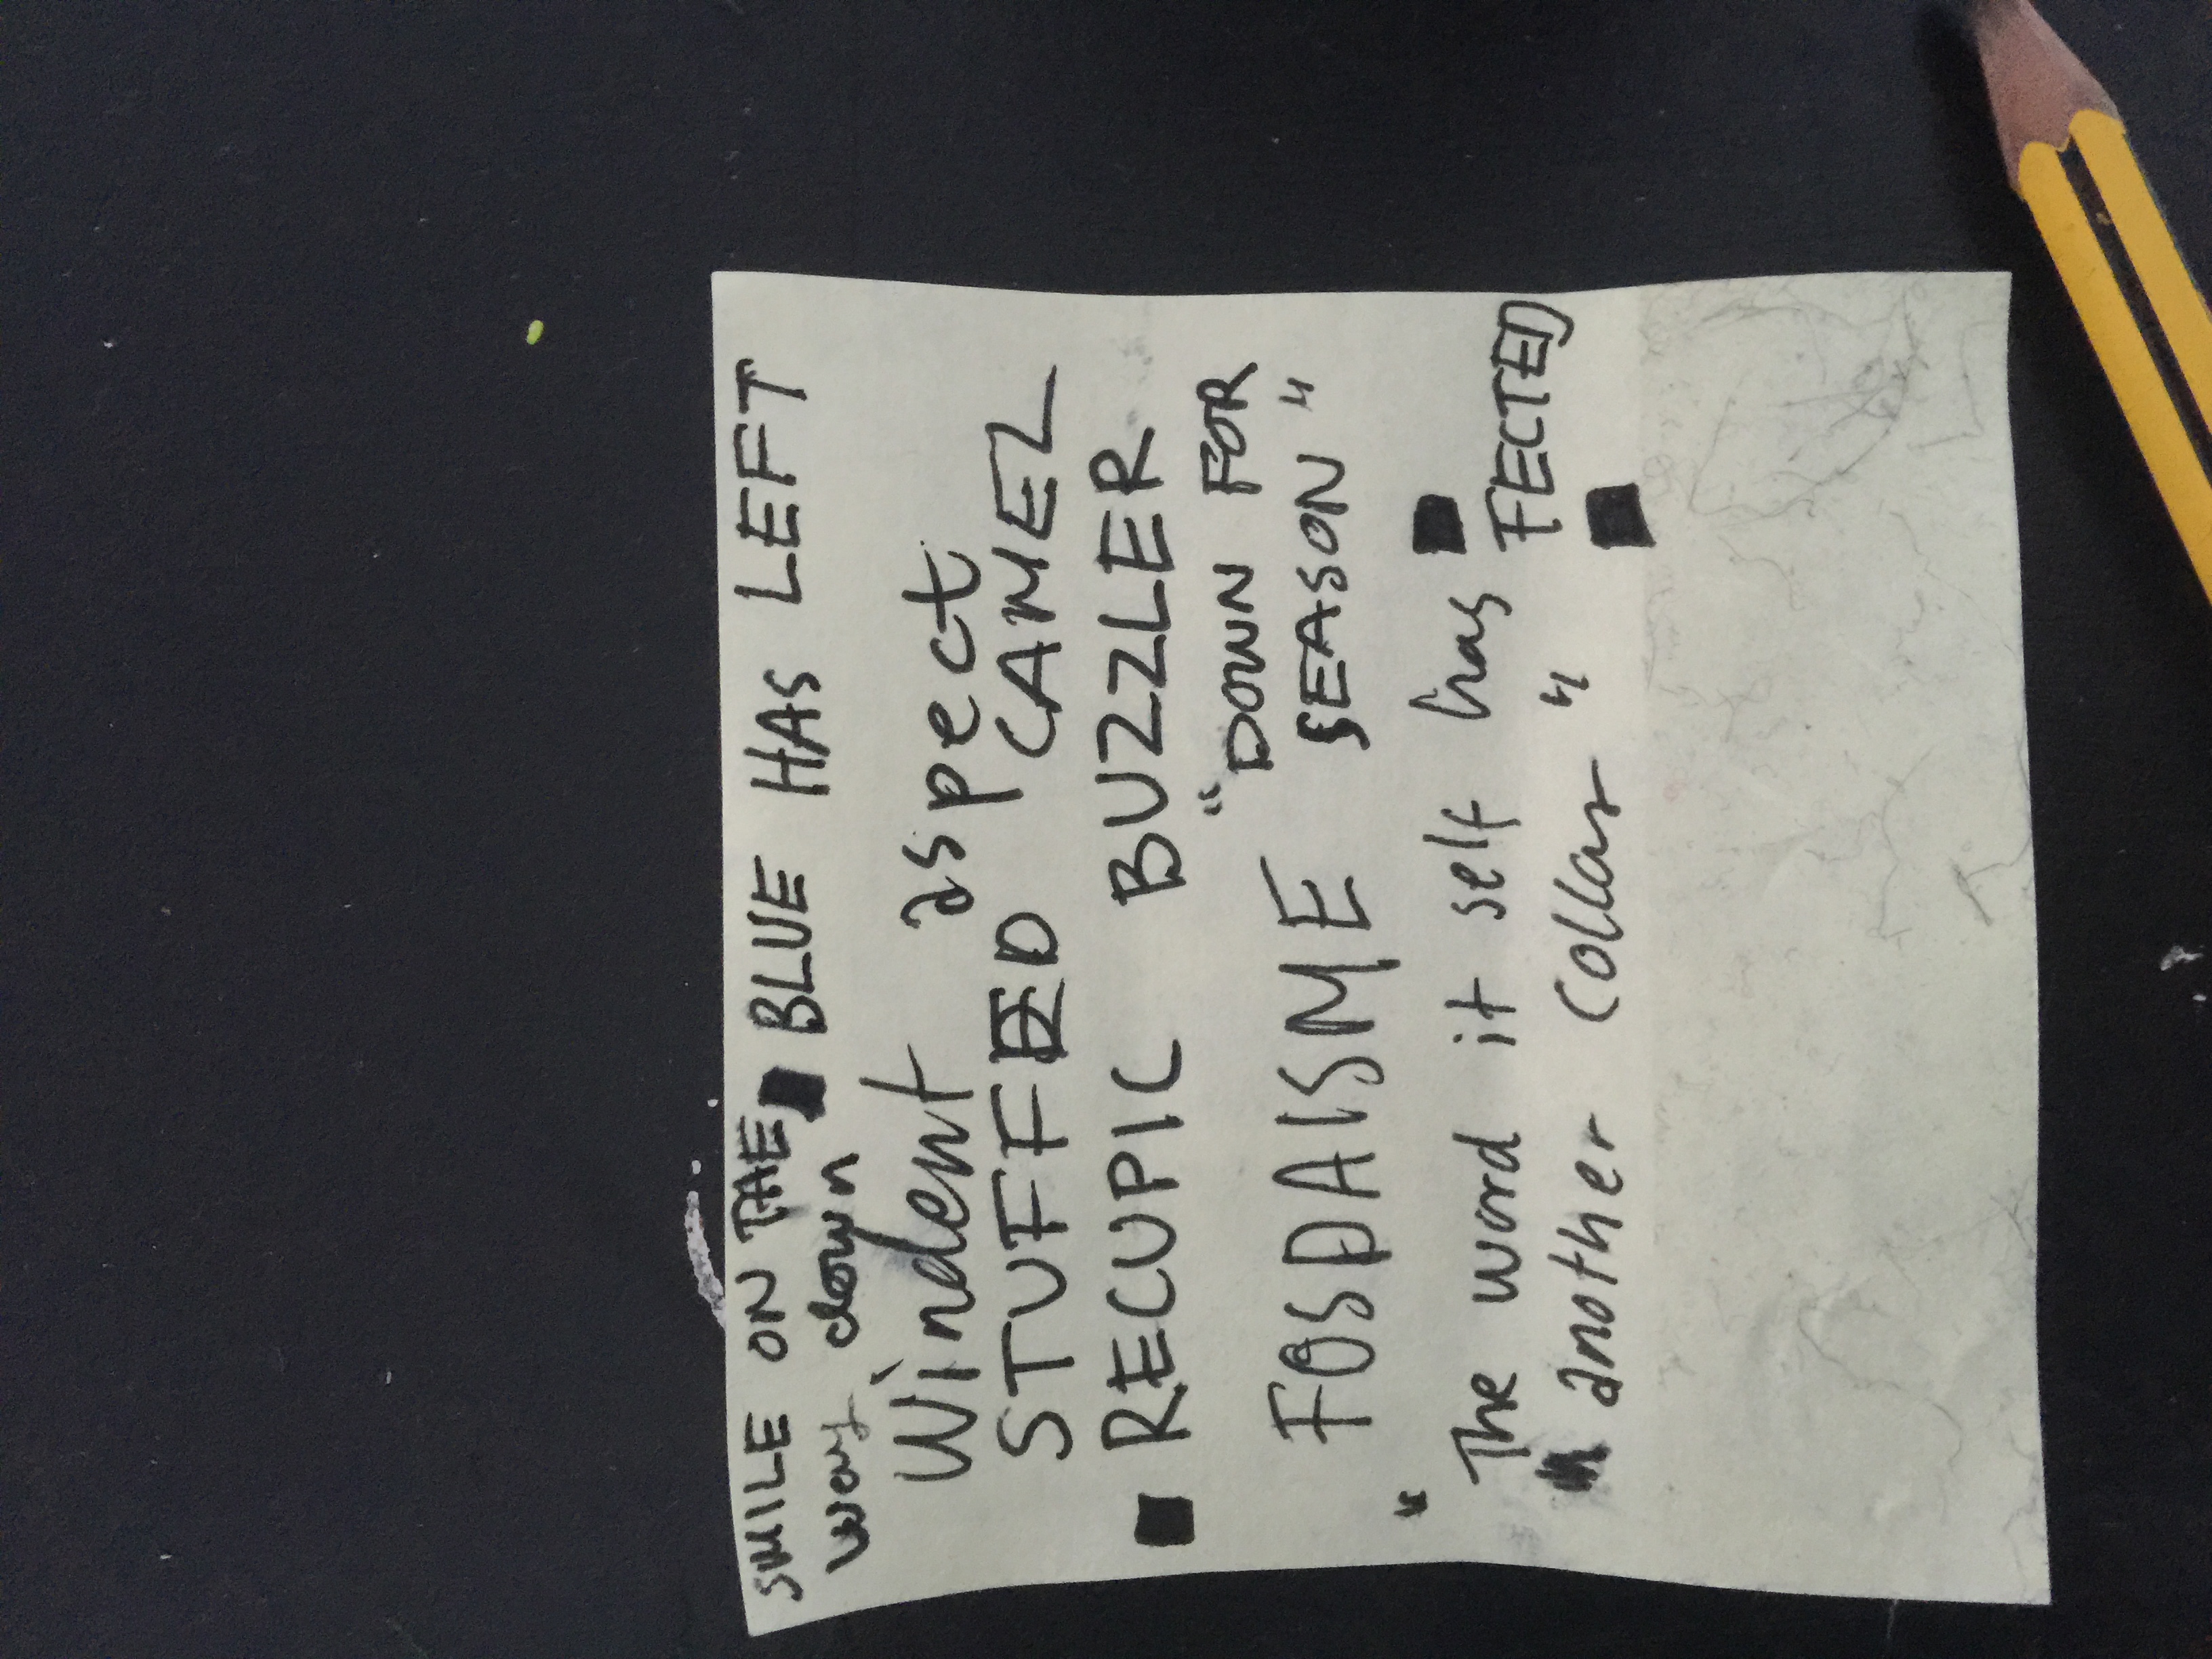 SMILE ON THE BLUE HAS LEFT
way down
Windent aspect
STUFFED CAMEL
RECUPIC BUZZLER
"DOWN FOR
FOSDAISME SEASON"
"The word it self has FECTED
another collar"